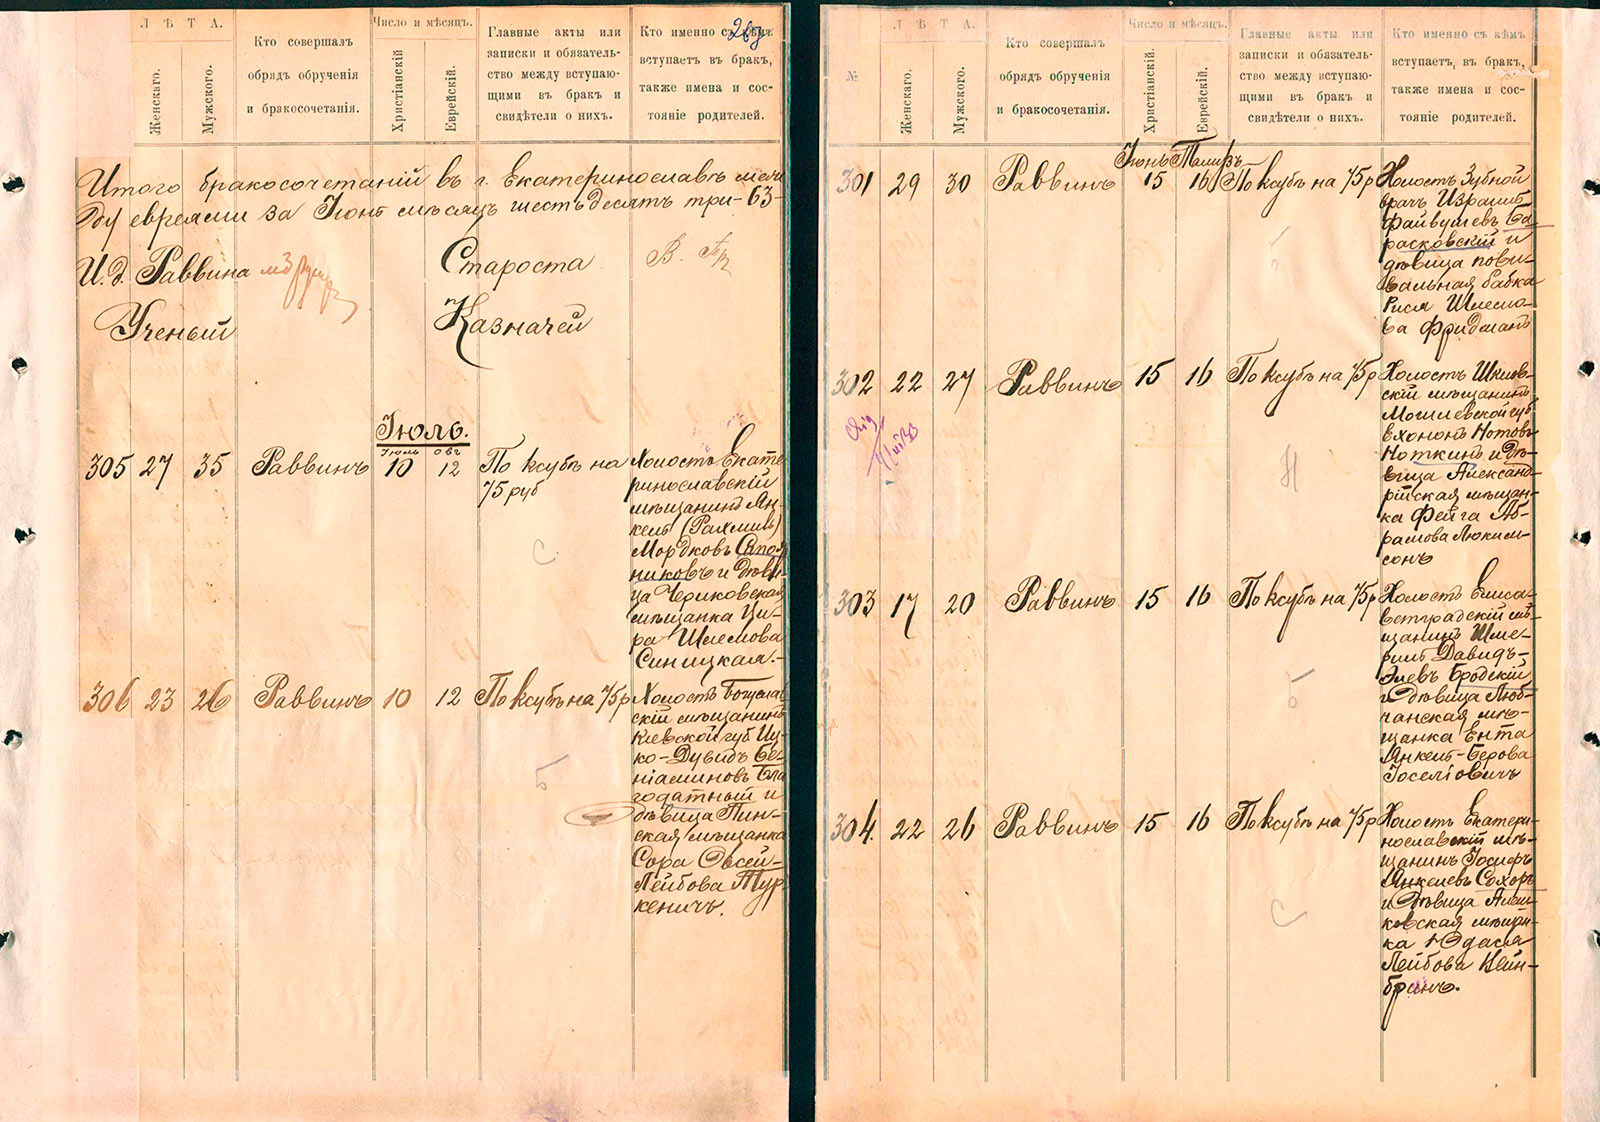 Л Ѣ Т А.
Женскаго.
Мужского.
Кто совершалъ
обрядъ обрученія
и бракосочетанія.
Число и мѣсяцъ.
Христіанскій
Еврейскій.
Главные акты или
записки и обязатель-
ство между вступаю-
щими въ бракъ и
свидѣтели о нихъ.
Кто именно съ кѣмъ
вступаетъ въ бракъ,
также имена и сос-
тояніе родителей.
Итого бракосочетаній въ г. Екатеринославѣ между
евреями за Іюнь мѣсяцъ шестьдесятъ три-63-
И.д. Раввина
Староста
Ученый
Казначей
Іюль.
Іюль
305 27 35 Раввинъ 10 12 По ксубѣ на
75 руб
Холостъ Екате-
ринославскій
мѣщанинъ Ян-
кель (Рахмиль)
Мордковъ Сапож
никовъ и дѣви-
ца Чериковская
мѣщанка Ци-
ра Шлемова
Синицкая.-
306 23 26 Раввинъ 10 12 По ксубѣ на 75 р
Холостъ Богуслав
скій мѣщанинъ
Кіевской губ Иц-
ко-Дувидъ Бе-
ніаминовъ Бла
годатный и
дѣвица Пин-
ская мѣщанка
Сора Овсей-
Лейбова Тур
кеничъ.
№
Л Ѣ Т А.
Женскаго.
Мужского.
Кто совершалъ
обрядъ обрученія
и бракосочетанія.
Число и мѣсяцъ.
Христіанскій
Еврейскій.
Главные акты или
записки и обязатель-
ство между вступаю-
щими въ бракъ и
свидѣтели о нихъ.
Кто именно съ кѣмъ
вступаетъ въ бракъ,
также имена и сос-
тояніе родителей.
Іюнь Тамизъ
301 29 30 Раввинъ 15 16 По ксубѣ на 75 р
Холостъ Зубной
врачъ Израиль
Файвушевъ Ба
расковскій и
дѣвица пови-
вальная бабка
Рися Шлемо-
ва Фридманъ
302 22 27 Раввинъ 15 16 По ксубѣ на 75 р
Холостъ Шклов-
скій мѣщанинъ
Могилевской губ
Ехононъ Нотовъ
Ноткинъ и дѣ-
вица Александ-
рійская мѣщан-
ка Фейга Аб-
рамова Люким-
сонъ
303 17 20 Раввинъ 15 16 По ксубѣ на 75 р
Холостъ Елиса-
ветградскій мѣ-
щанинъ Шме-
риль Давидъ-
Элевъ Бродскій
и дѣвица Люб-
чанская мѣ-
щанка Ента
Янкель-Берова
Іоселіовичъ
304. 22 26 Раввинъ 15 16 По ксубѣ на 75 р
Холостъ Екатери-
нославскій мѣ-
щанинъ Іосифъ
Янкелевъ Сохоръ
и дѣвица
ковская мѣщан-
ка Юдася
Лейбова Вейн-
бранъ.